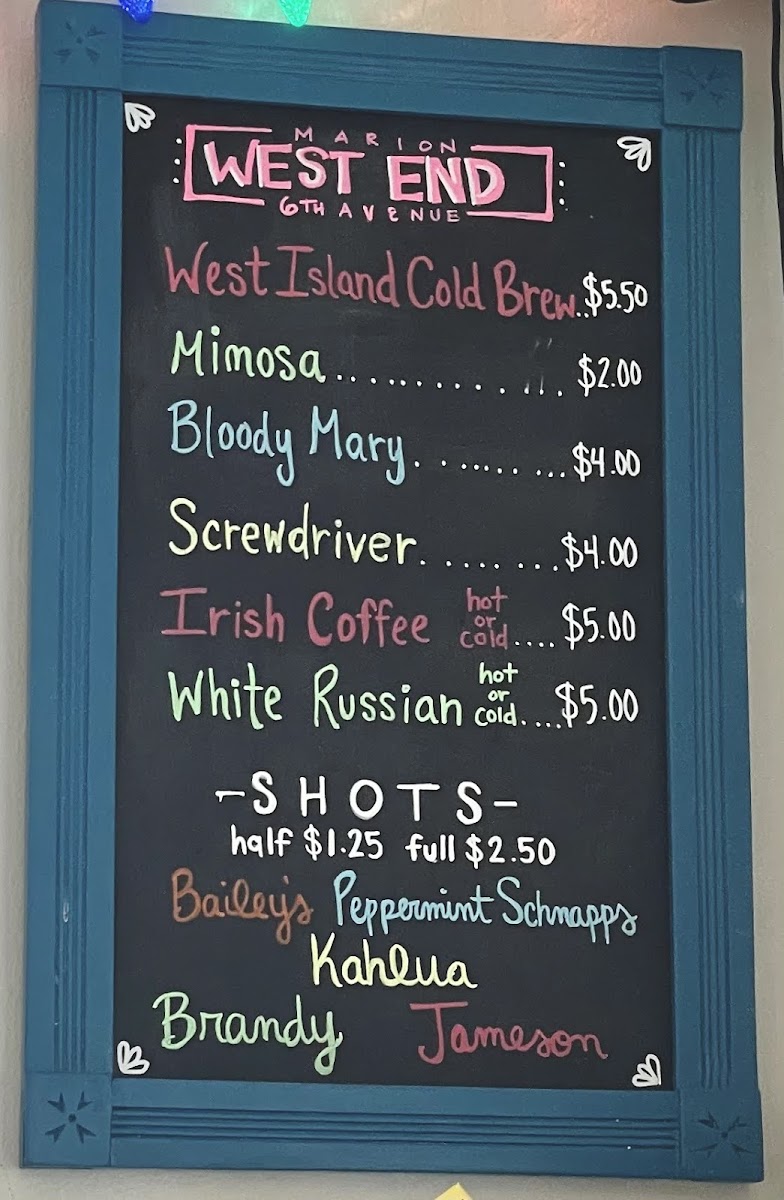 MARION
WEST END
6TH AVENUE
West Island Cold Brew..$5.50
Mimosa.............$2.00
Bloody Mary..........$4.00
Screwdriver.........$4.00
Irish Coffee hot or cold....$5.00
White Russian hot or cold....$5.00
-SHOTS-
half $1.25 full $2.50
Bailey's Peppermint Schnapps
Kahlua
Brandy Jameson